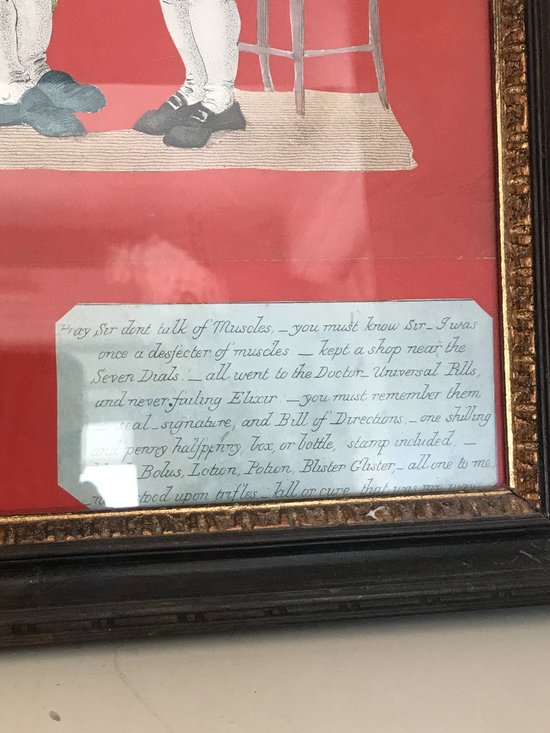 Pray Sir dont talk of Muscles, — you must know Sir — I was
once a desfecter of muscles — kept a shop near the
Seven Dials. — all went to the Doctor — Universal Pills,
and never failing Elixir — you must remember them
— seal — signature, and Bill of Directions, — one shilling
and penny halfpenny, box, or bottle, stamp included —
Bolus, Lotion, Potion, Blister Glister — all one to me,
stood upon trifles — kill or cure that was my way